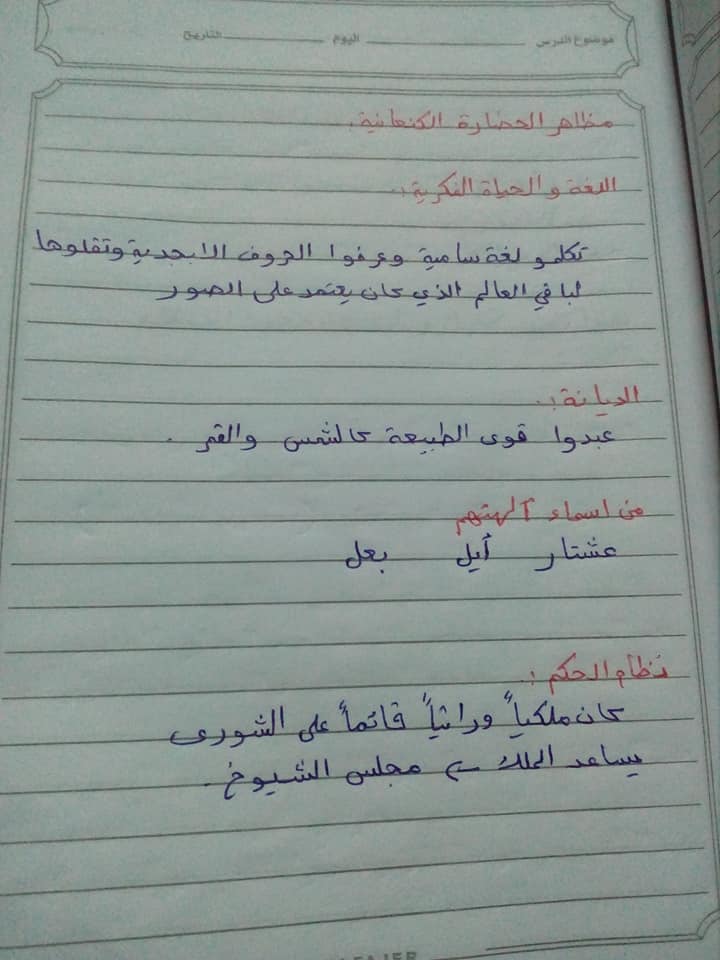 موضوع الدرس اليوم التاريخ
مظاهر الحضارة الكنعانية.
اللغة والحياة الفكرية:.
تكلمو لغة سامية وعرفوا الحروف الابجدية وتقلوها
لباقي العالم الذي كان يعتمد على الصور
الديانة:.
عبدوا قوى الطبيعة كالشمس والقمر.
من اسماء آلهتهم
عشتار أيل بعل
نظام الحكم:.
كان ملكياً وراثياً قائماً على الشورى
يساعد الملك ← مجلس الشيوخ.